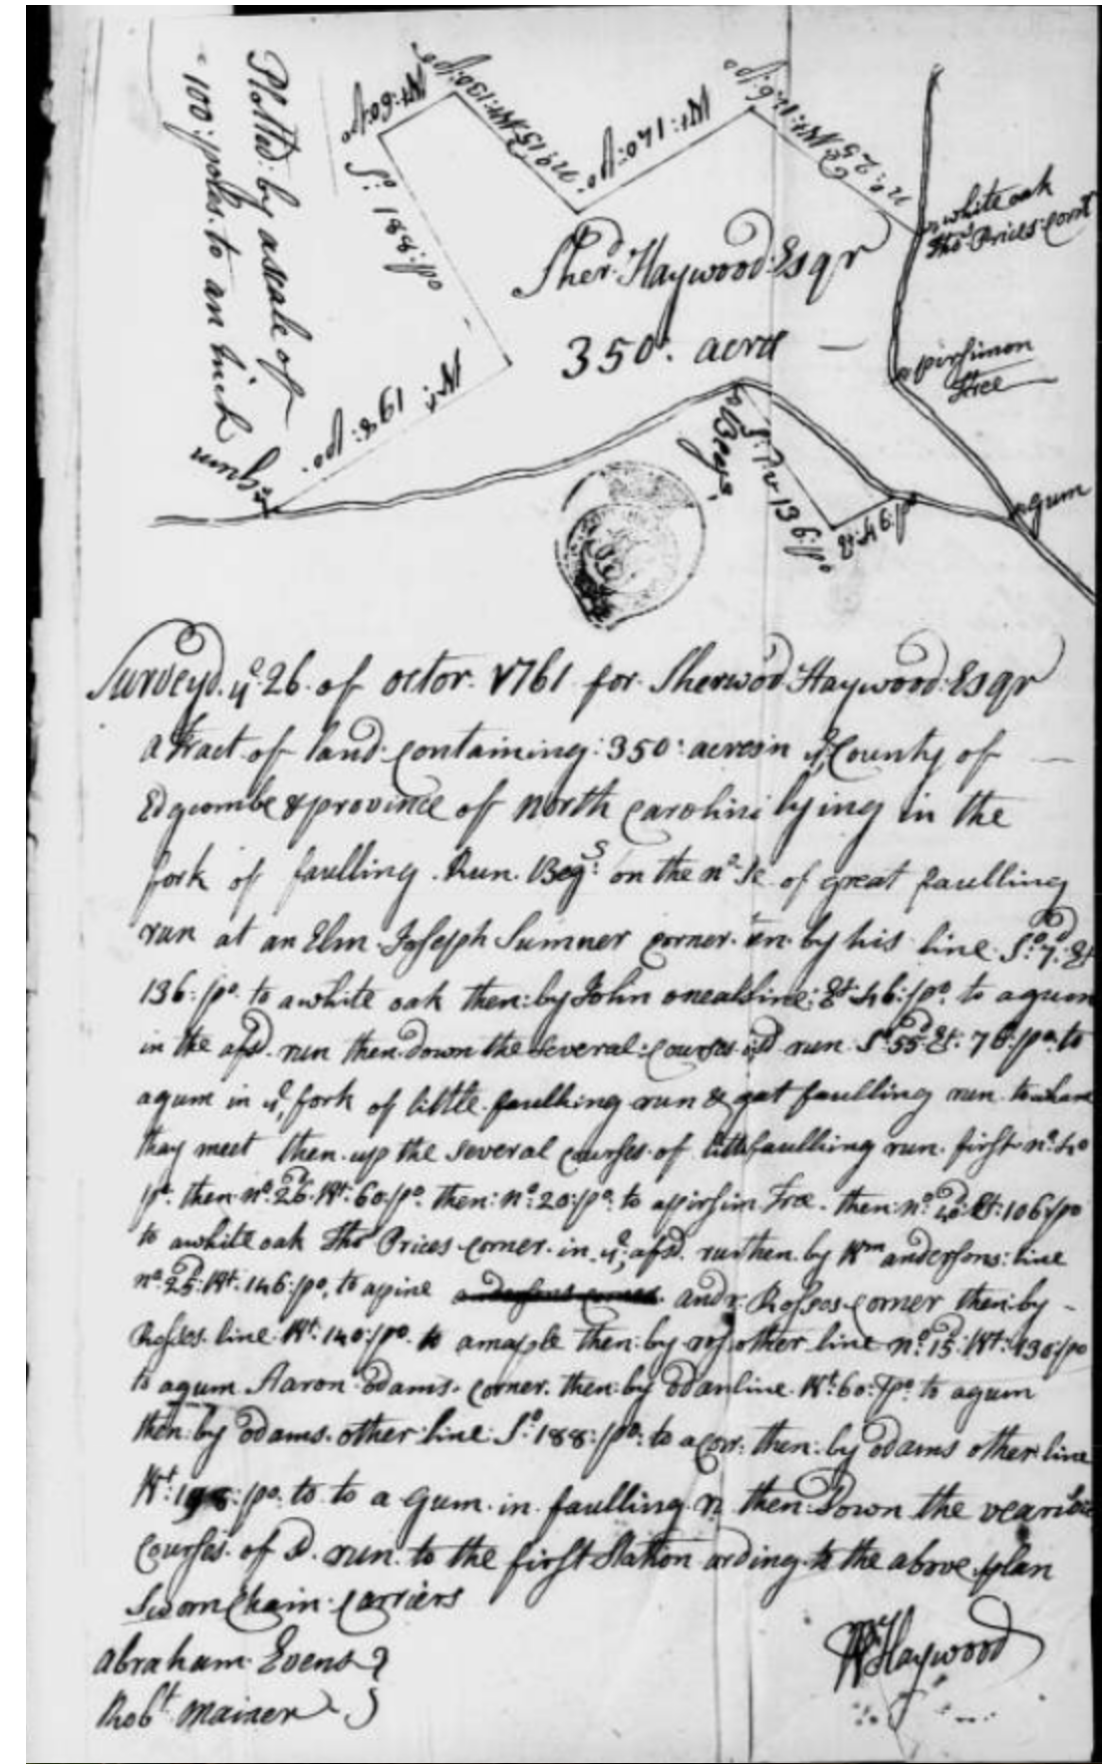 Plotted by a scale of
100: poles. to an Inch
Wt: 60: po
no: 15 Wt: 130: po
Wt: 140: po
no: 25 Wt: 146: po
So. 188: po
Wt: 198: po.
gum
Sherd. Haywood: Esqr
350: acres
white oak
Tho Prices Corn
pirsimon
tree
gum
Beg
136: po
Et: 46: po
Surveyd. ye 26. of octor. 1761 for. Sherwod Haywood: Esqr
a tract of land. containing: 350: acres in ye County of
Edgcombe & province of north carolini lying in the
fork of faulling. Run. Begs: on the no. Se of great faulling
run at an Elm. Joseph Sumner corner. by his line. So. 7d. Et
136: po. to a white oak then: by John oneals line: Et 46: po. to a gum
in the afsd. run then. down the several: courses. sd run So 55d Et: 76: po: to
a gum in ye fork of little. faulling run & gat faulling run to whare
thay meet then. up the several courses. of little faulling run. first no. 40
po: then. no. 26d. Wt: 60: po. then: no. 20: po. to a pirsim Tree. then: no. 40d Et: 106 po
to a white oak Tho Prices corner. in. ye afsd. run then. by Wm andersons: line
no. 25d: Wt. 146: po, to a pine andr. Rosses. corner then. by
Rosses. line. Wt. 140: po. to a maple then: by ros other line no. 15d: Wt: 130: po
to a gum Aaron odams. corner. then: by odan line. Wt: 60: po to a gum
then: by odams. other line So. 188: po: to a corr: then: by odams other line
Wt: 198: po. to to a Gum. in. faulling. rn then: Down the
courses. of sd. run. to the first Station ording to the above plan
Sworn Chain. carriers
abraham. Evens
Robt mainer
W Haywood